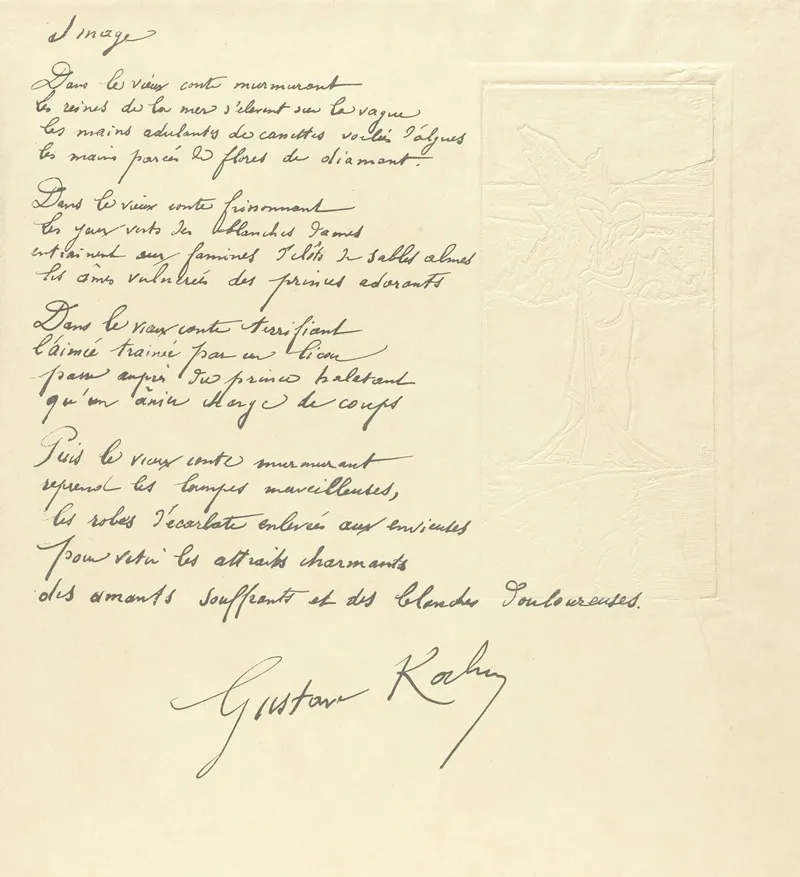 Image
Dans le vieux conte murmurant
les reines de la mer s'elevent sur la vague
les mains adulantes de voilées d'algues
les mains parées de flores de diamant.
Dans le vieux conte frissonnant
les yeux verts des blanches dames
entrainent aux famines d'ilôts de sables almes
les âmes vulnerées des princes adorants
Dans le vieux conte terrifiant
l'aimée trainée par un licou
passe auprès du prince haletant
qu'un ânier charge de coups
Puis le vieux conte murmurant
reprend les lampes merveilleuses,
les robes d'écarlate enlevées aux envieuses
pour vetir les attraits charmants
des amants souffrants et des blanches douloureuses.
Gustave Kahn